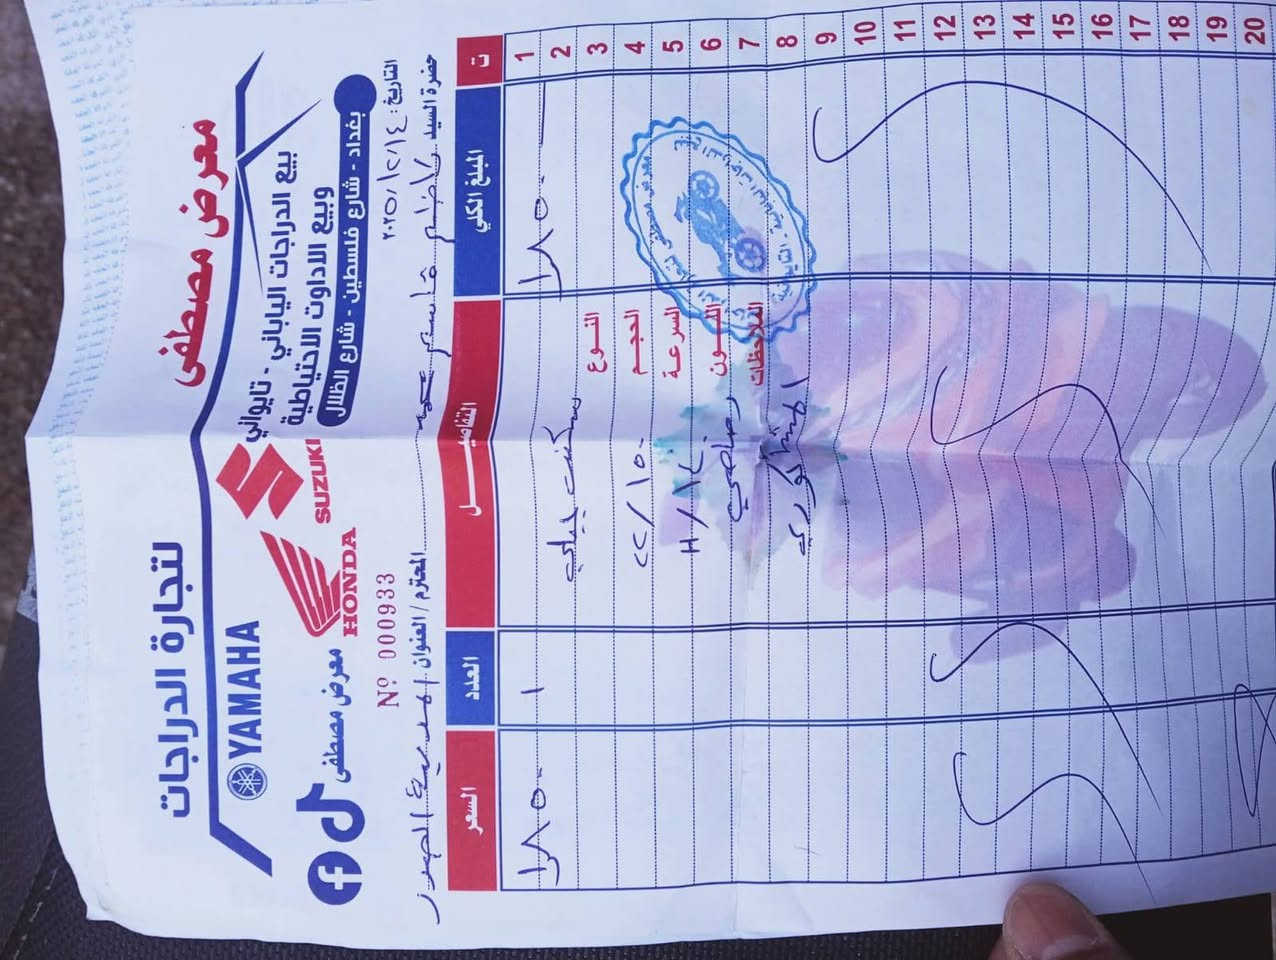 معرض مصطفى
لتجارة الدراجات
بيع الدراجات الياباني - تايواني
وبيع الاداوت الاحتياطية
بغداد - شارع فلسطين - شارع الظلال
SUZUKI
HONDA
YAMAHA
معرض مصطفى
التاريخ: ٢٠٢٥/١٢/٤
Nº 000933
حضرة السيد كاظم قاسم محمد المحترم / العنوان
ت المبلغ الكلي التفاصيل العدد السعر
1 ١٨٥٠ ١ ١٨٥٠
2
3 النوع
4 الحجم ١٥٠ / CC
5 السرعة H / ١٢٠
6 اللون رصاصي
7 الملاحظات
8
9
10
11
12
13
14
15
16
17
18
19
20